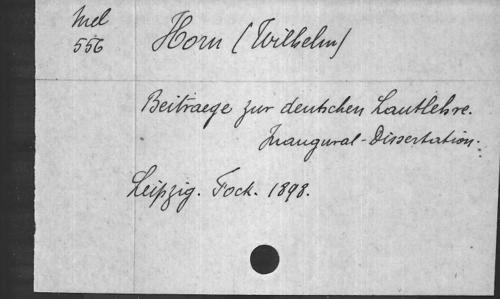 Mel
556
Horn (Wilhelm)
Beitraege zur deutschen Lautlehre.
Inaugural-Dissertation.
Leipzig. Fock. 1898.